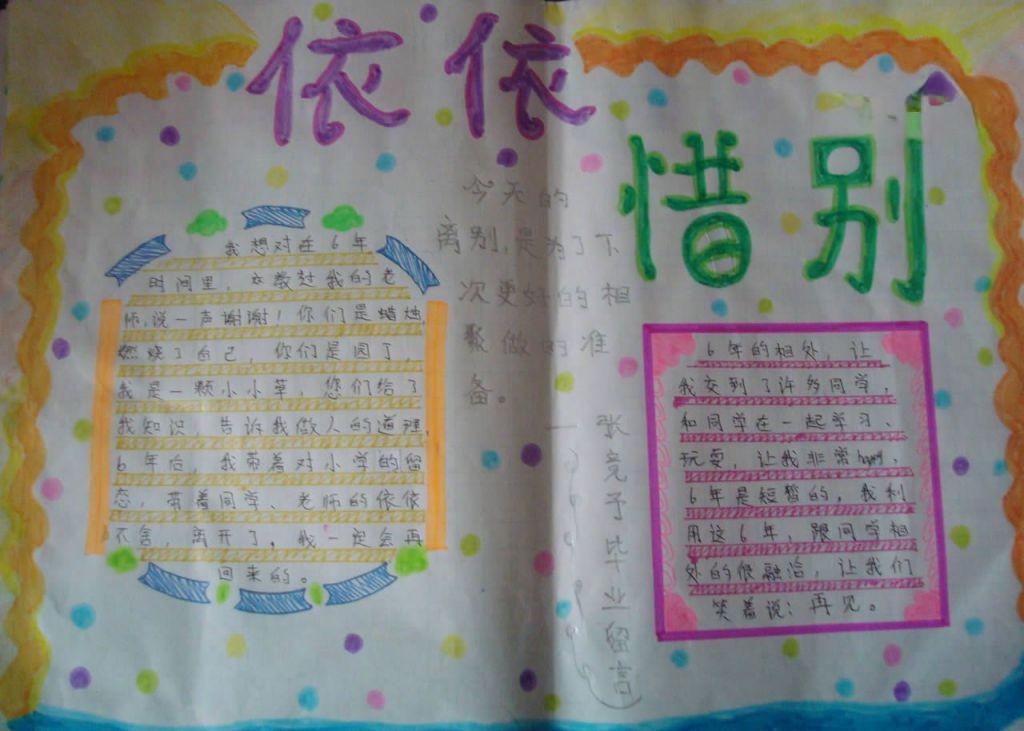 依依
惜别
今天的
离别,是为了下
次更好的相
聚做的准
备。
—张竞予毕业留言
我想对在6年
时间里,文教过我的老
师,说一声谢谢!你们是蜡烛,
燃烧了自己,你们是园丁,
我是一颗小小草,您们给了
我知识,告诉我做人的道理,
6年后,我带着对小学的留
恋,带着同学、老师的依依
不舍,离开了,我一定会再
回来的。
6年的相处,让
我交到了许多同学,
和同学在一起学习、
玩耍,让我非常happy,
6年是短暂的,我利
用这6年,跟同学相
处的很融洽,让我们
笑着说:再见。